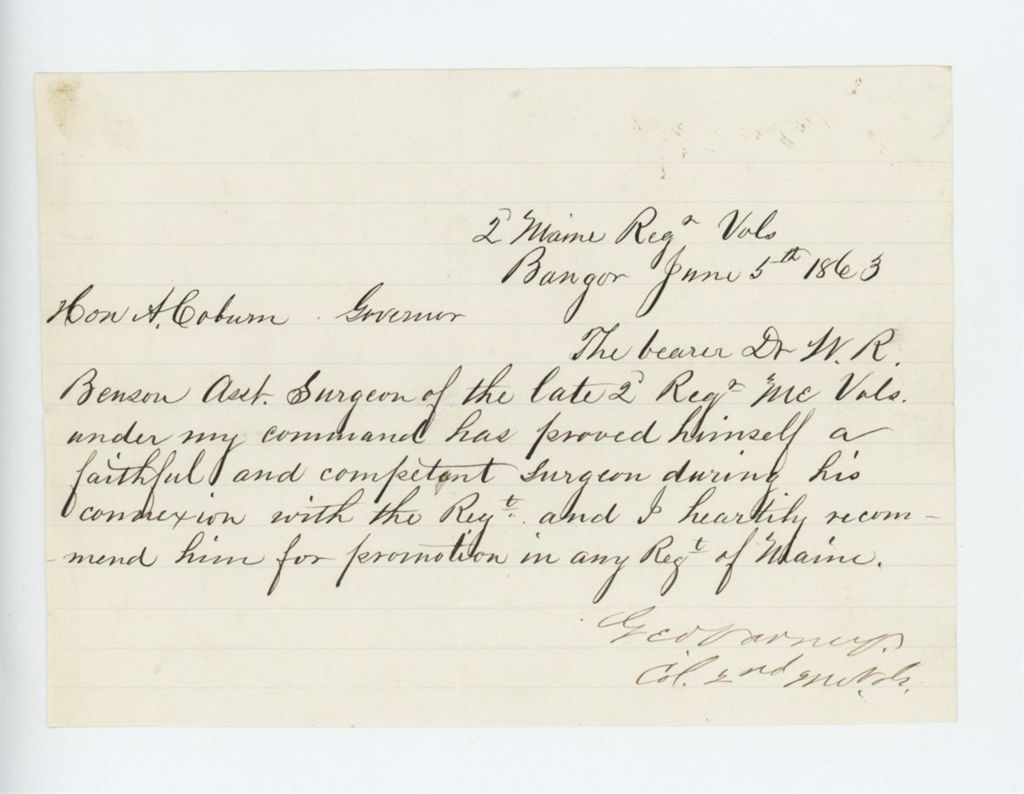 2 Maine Regt Vols
Bangor June 5th 1863
Hon A. Coburn Governor
The bearer Dr W. R.
Benson Asst. Surgeon of the late 2 Regt Me Vols.
under my command has proved himself a
faithful and competant surgeon during his
connexion with the Regt. and I heartily recom-
-mend him for promotion in any Regt of Maine.
Geo Varney.
Col. 2nd Me Vols.